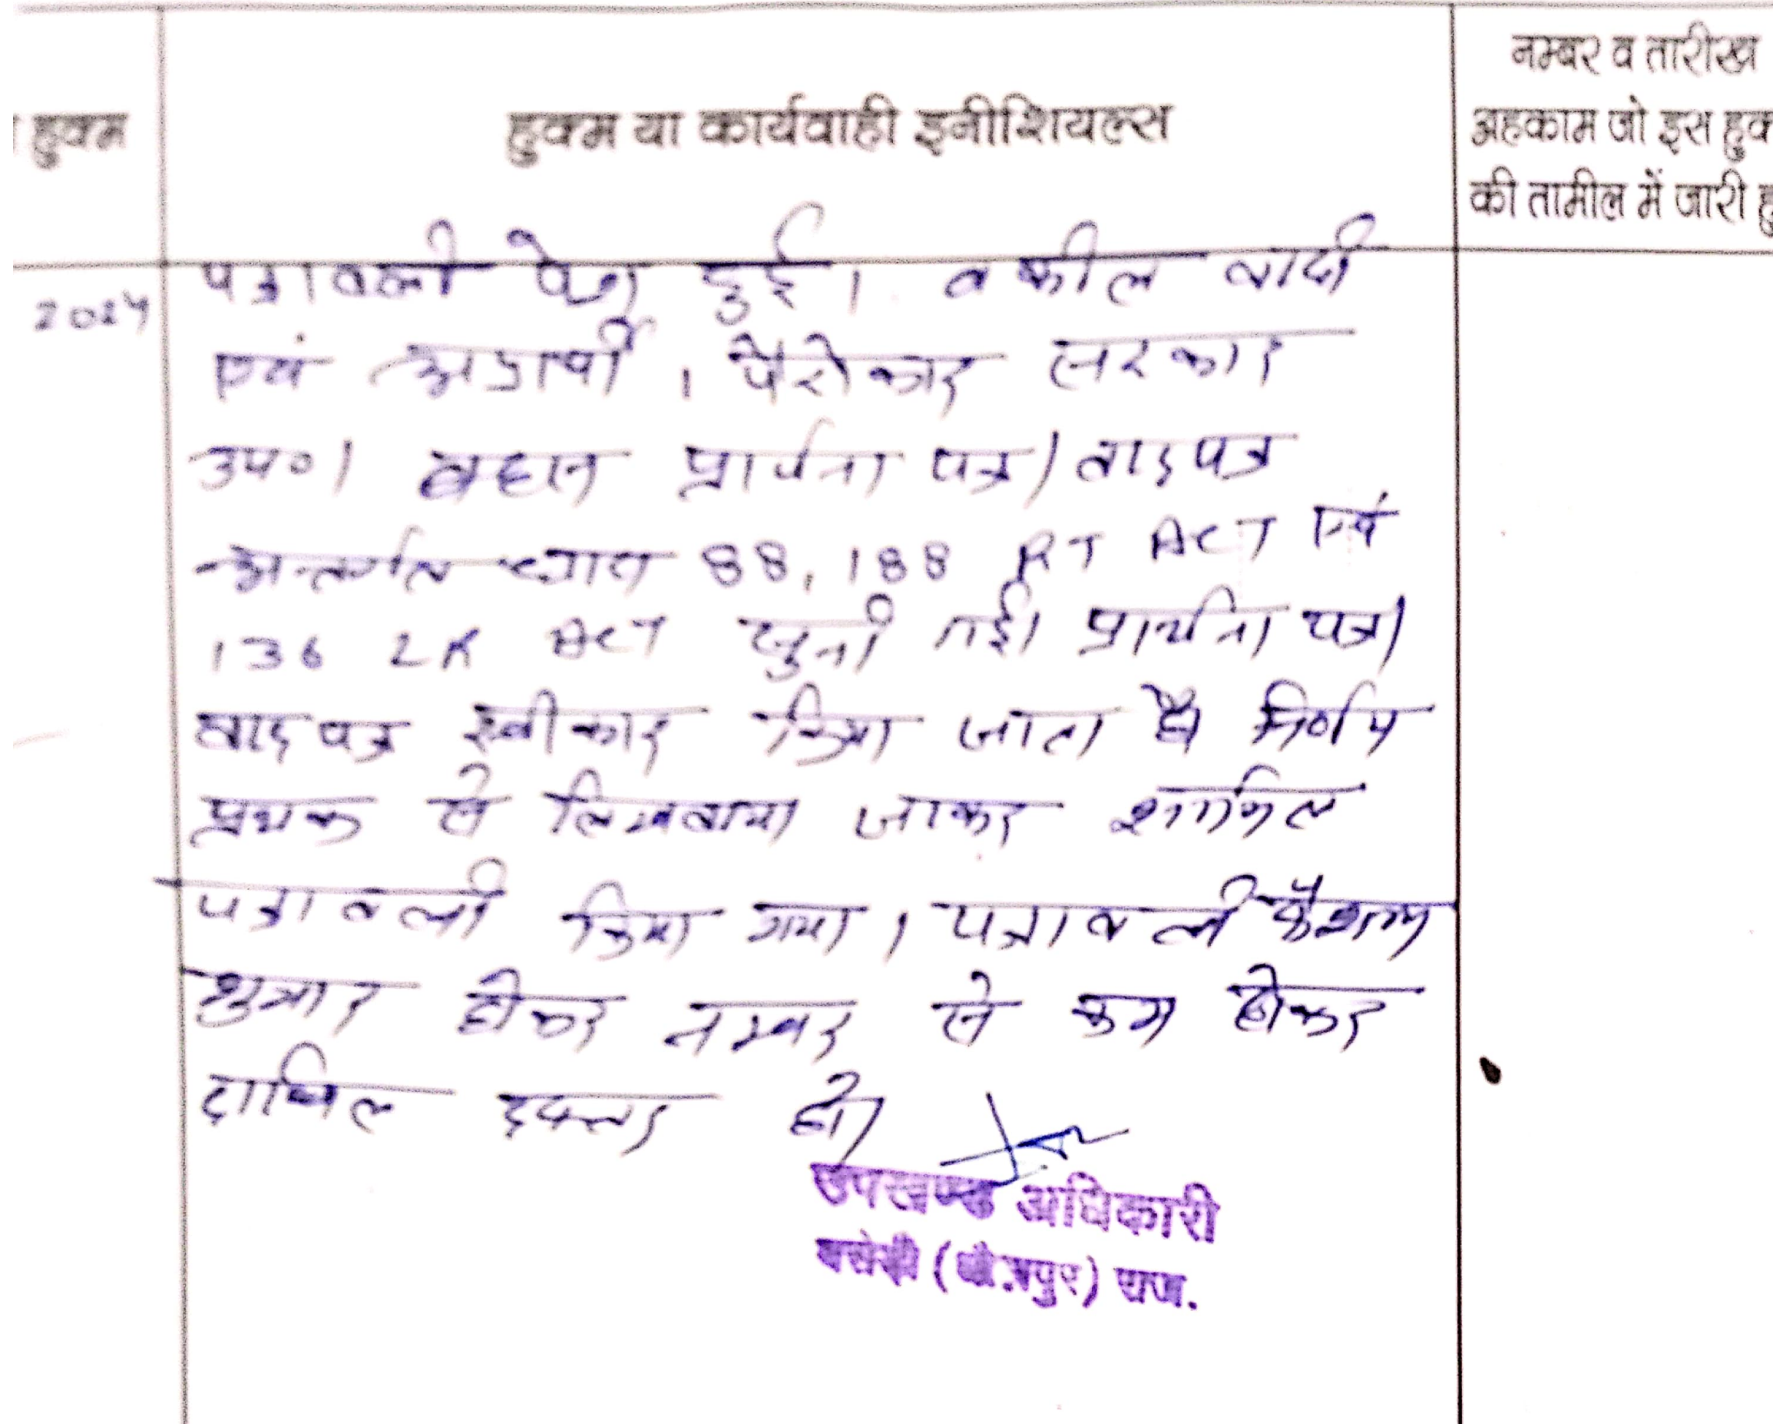 हुक्म
हुक्म या कार्यवाही इनीशियल्स
नम्बर व तारीख
अहकाम जो इस हुक
की तामील में जारी हु
2024
पत्रावली पेश हुई। वकील वादी
एवं अप्रार्थी, पैरोकार सरकार
उप०। बहस प्रार्थना पत्र/वादपत्र
अन्तर्गत धारा 88, 188 RT ACT एवं
136 LR ACT सुनी गई। प्रार्थना पत्र/
वादपत्र स्वीकार किया जाता है। निर्णय
प्रथक से लिखवाया जाकर शामिल
पत्रावली किया गया। पत्रावली फैशल
शुमार होकर नम्बर से कम होकर
दाखिल दफ्तर हो।
उपखण्ड अधिकारी
बसेड़ी (धौलपुर) राज.